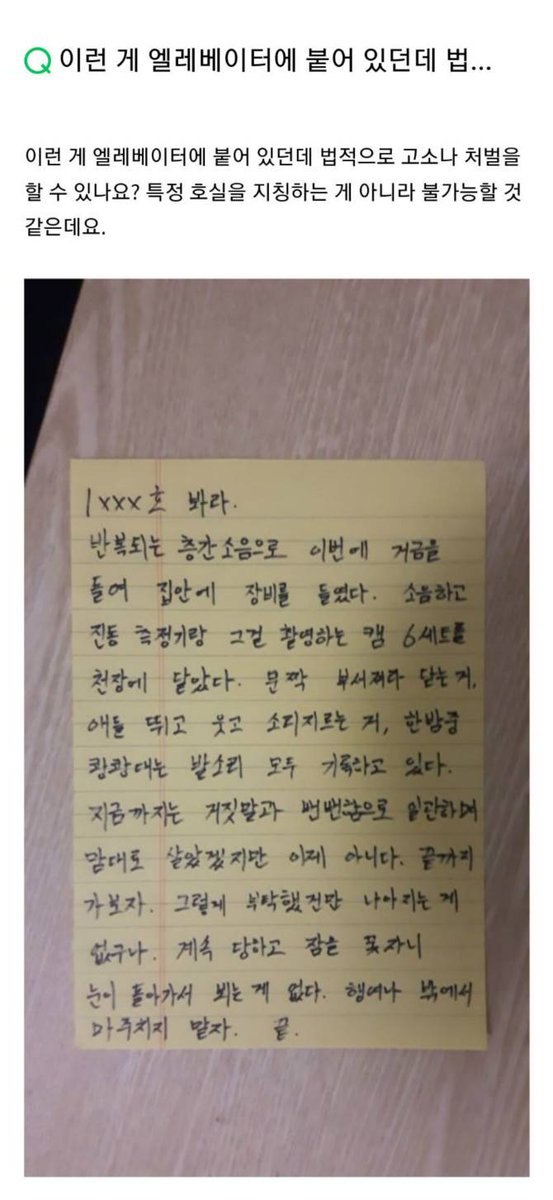 Q 이런 게 엘레베이터에 붙어 있던데 법...
이런 게 엘레베이터에 붙어 있던데 법적으로 고소나 처벌을
할 수 있나요? 특정 호실을 지칭하는 게 아니라 불가능할 것
같은데요.
1xxx호 봐라.
반복되는 층간소음으로 이번에 거금을
들여 집안에 장비를 들였다. 소음하고
진동 측정기랑 그걸 촬영하는 캠 6세트를
천장에 달았다. 문짝 부서져라 닫는거,
애들 뛰고 웃고 소리지르는 거, 한밤중
쾅쾅대는 발소리 모두 기록하고 있다.
지금까지는 거짓말과 뻔뻔함으로 일관하며
맘대로 살았겠지만 이제 아니다. 끝까지
가보자. 그렇게 부탁했건만 나아지는 게
없구나. 계속 당하고 잠을 못자니
눈이 돌아가서 뵈는 게 없다. 행여나 밖에서
마주치지 말자. 끝.